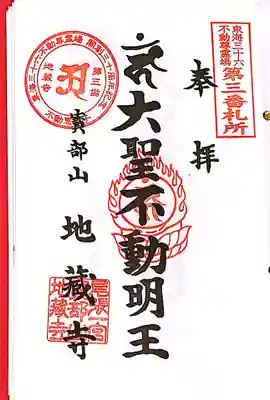 東海三十六
不動尊霊場
第三番札所
奉拝
大聖不動明王
寳部山
地蔵寺
東海三十六不動尊霊場
第三番
地蔵寺
不動明王
尾張一宮
地蔵寺